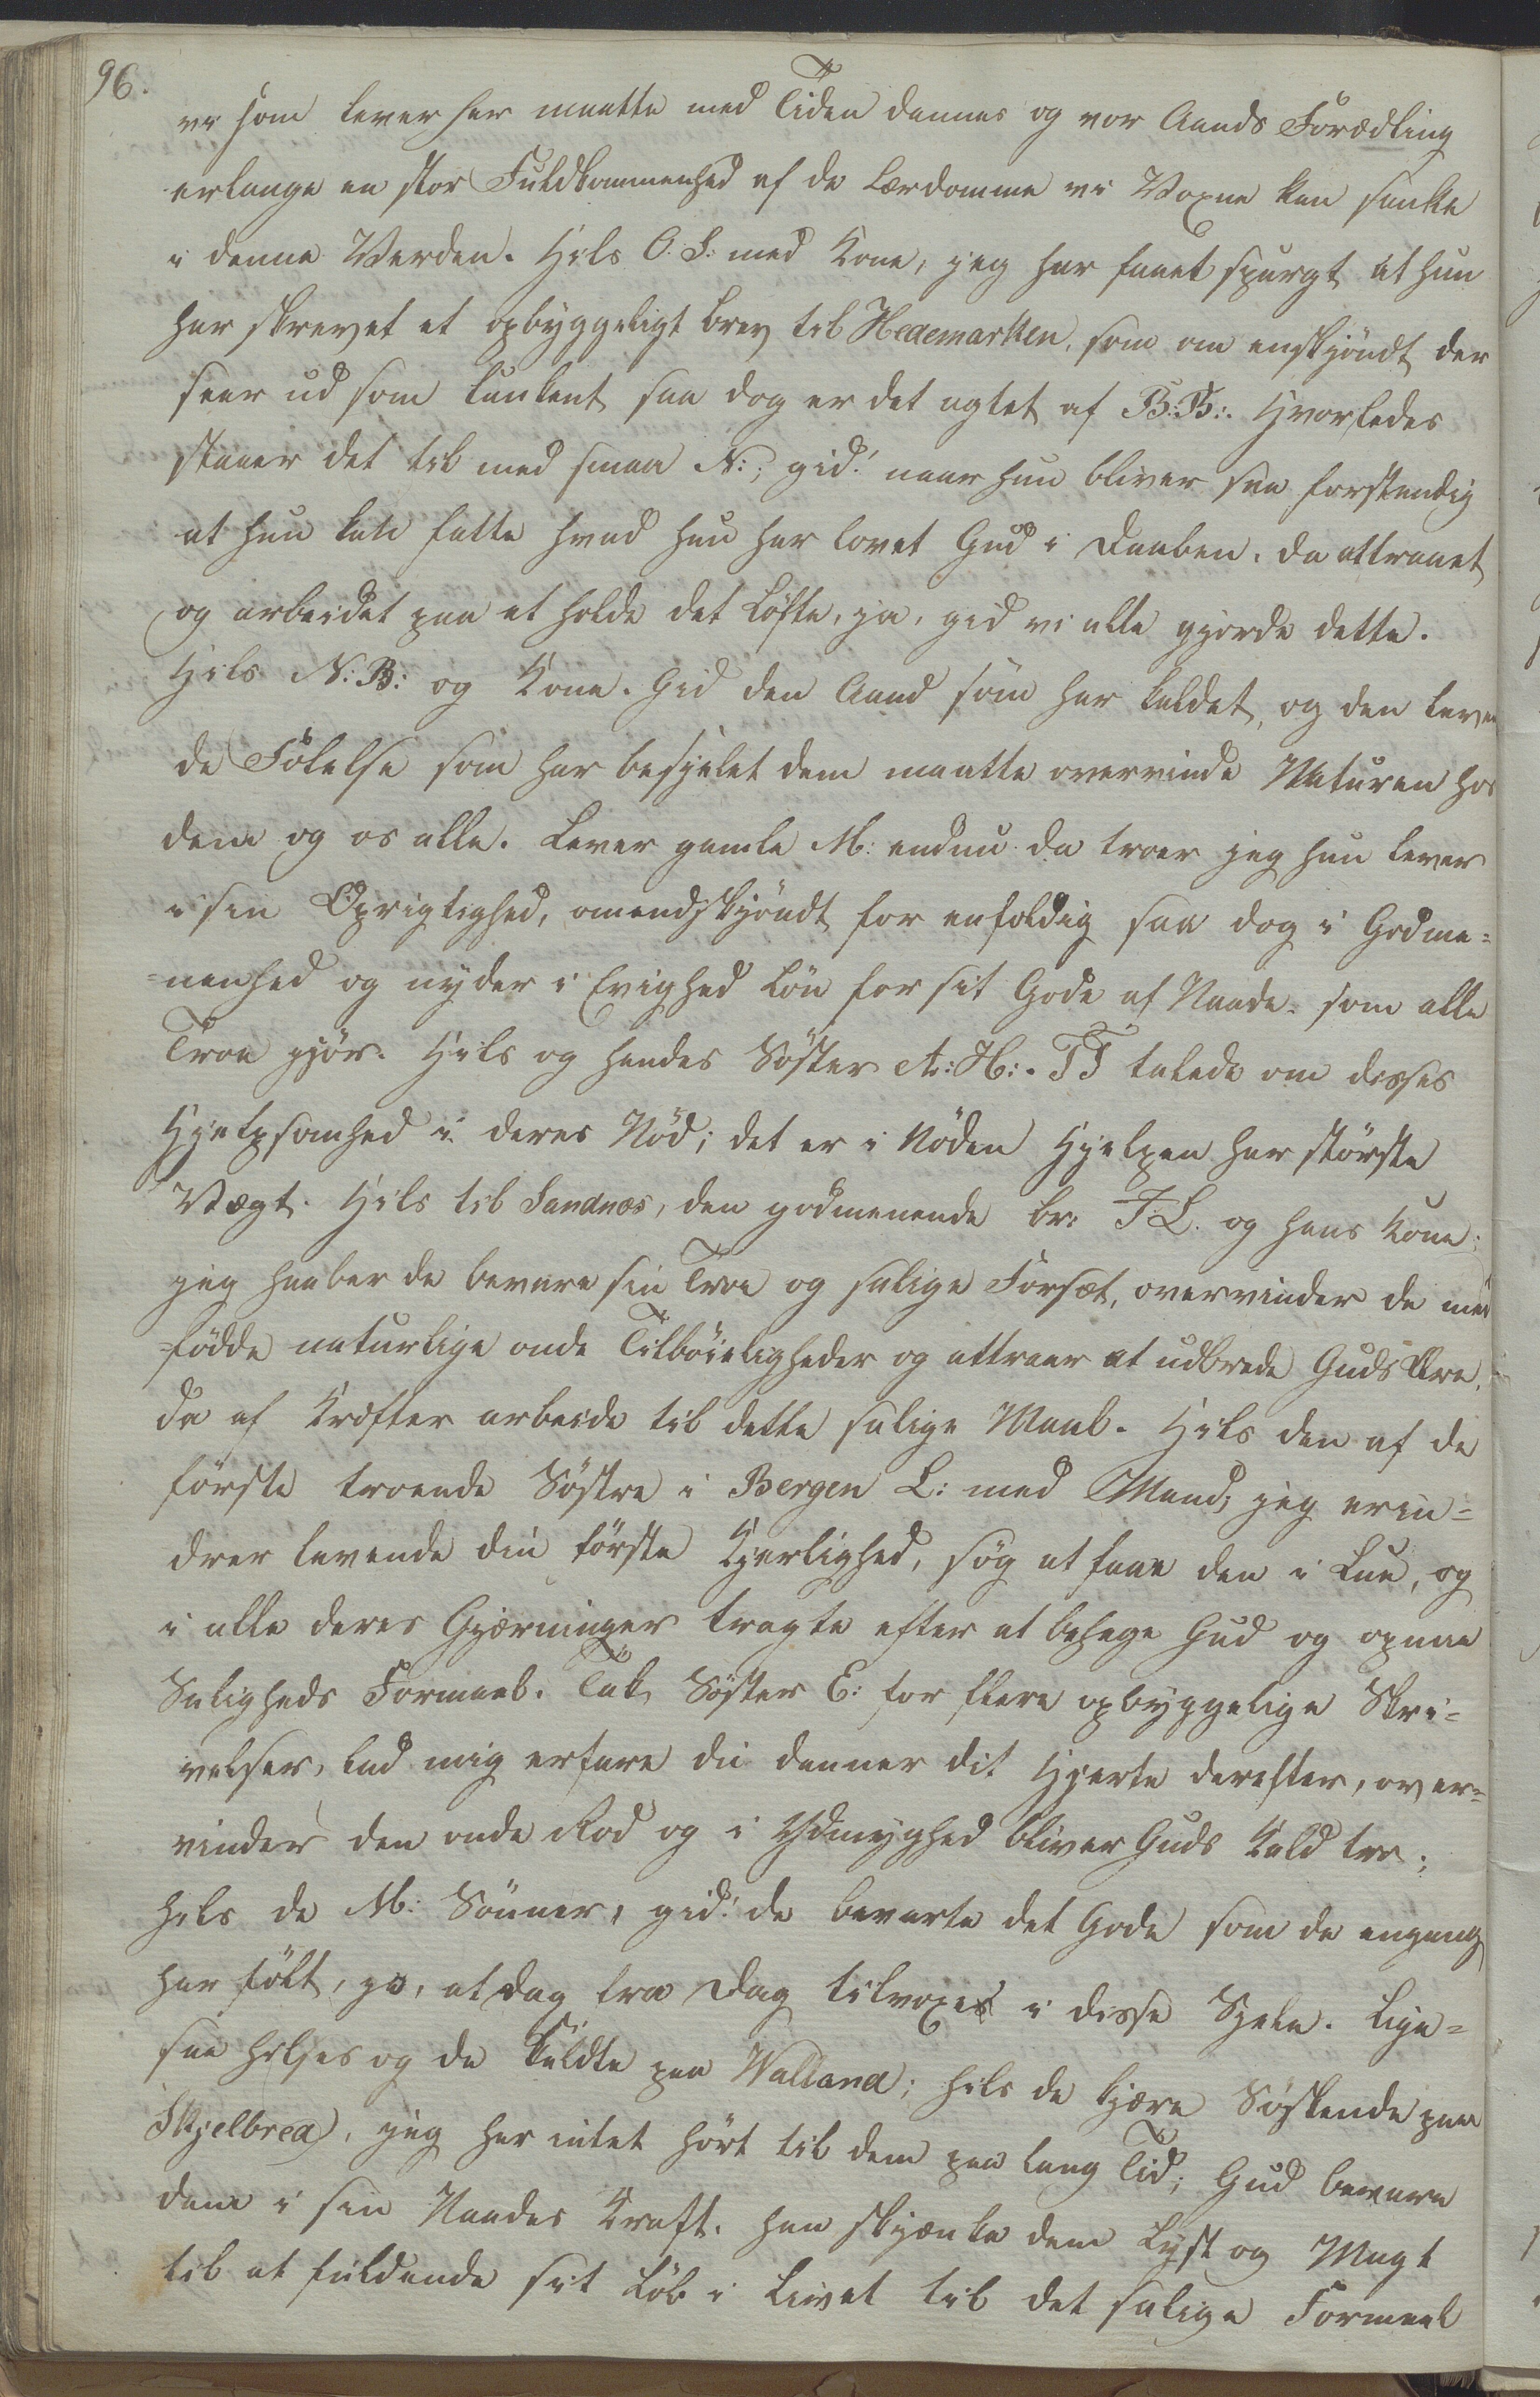 96.
vi som lever her maatte med Tiden dannes og vor Aands Forædling
erlange en stor Fuldkommenhed af de Lærdomme vi Voxne kan sanke
i denne Verden. Hils O. S: med Kone, jeg har faaet spurgt at hun
har skrevet et opbyggeligt Brev til Hedemarken, som om enskjöndt der
seer ud som lunkent saa dog er det agtet af B: B:. Hvorledes
staaer det til med smaa N:; gid! naar hun bliver saa forstandig
at hun kan fatte hvad hun har lovet Gud i Daaben, da attraaet
og arbeidet paa at holde det Löfte, ja, gid vi alle gjorde dette.
Hils N: B: og Kone. Gid den Aand som har kaldet, og den leven
de Fölelse som har besjelet dem maatte overvinde Naturen hos
dem og os alle. Lever gamle M: endnu da troer jeg hun lever
i sin Oprigtighed, omendskjöndt for enfoldig saa dog i Godme=
=nenhed og nyder i Evighed Lön for sit Gode af Naade. som alle
Troe gjör. Hils og hendes Söster A: H:. TT talede om disses
Hjelpsomhed i deres Nöd; det er i Nöden Hjelpen har störste
Vægt. Hils til Sandnæs, den godmenende Br: J. L. og hans Kone;
jeg haaber de bevare sin Troe og salige Forsæt, overvinder de med
=födde naturlige onde Tilböieligheder og attraaer at udbrede Guds Ære,
da af Kræfter arbeide til dette salige Maal. Hils den af de
förste troende Söstre i Bergen L: med Mand; jeg erin=
drer levende din förste Kjerlighed, søg at faae den i Lue, og
i alle deres Gjerninger tragte efter at behage Gud og opnaae
Saligheds Formaal. Tak Söster E: for flere opbyggelige Skri=
velser, lad mig erfare du danner dit Hjerte derefter, over=
vinder den onde Rod og i Ydmyghed bliver Guds Kald tro;
hils de M: Sönner, gid! de bevarte det Gode som de engang
har fölt, ja, at dag fra Dag tilvoxer i disse Sjele. Lige=
saa hilses og de kuldte paa Walland; hils de kjære Söskende paa
Skjelbrea, jeg har intet hört til dem paa lang Tid; Gud bevare
dem i sin Naades Kraft. han skjænke dem Lyst og Magt
til at fuldende sit Löb i Livet til det salige Formaal